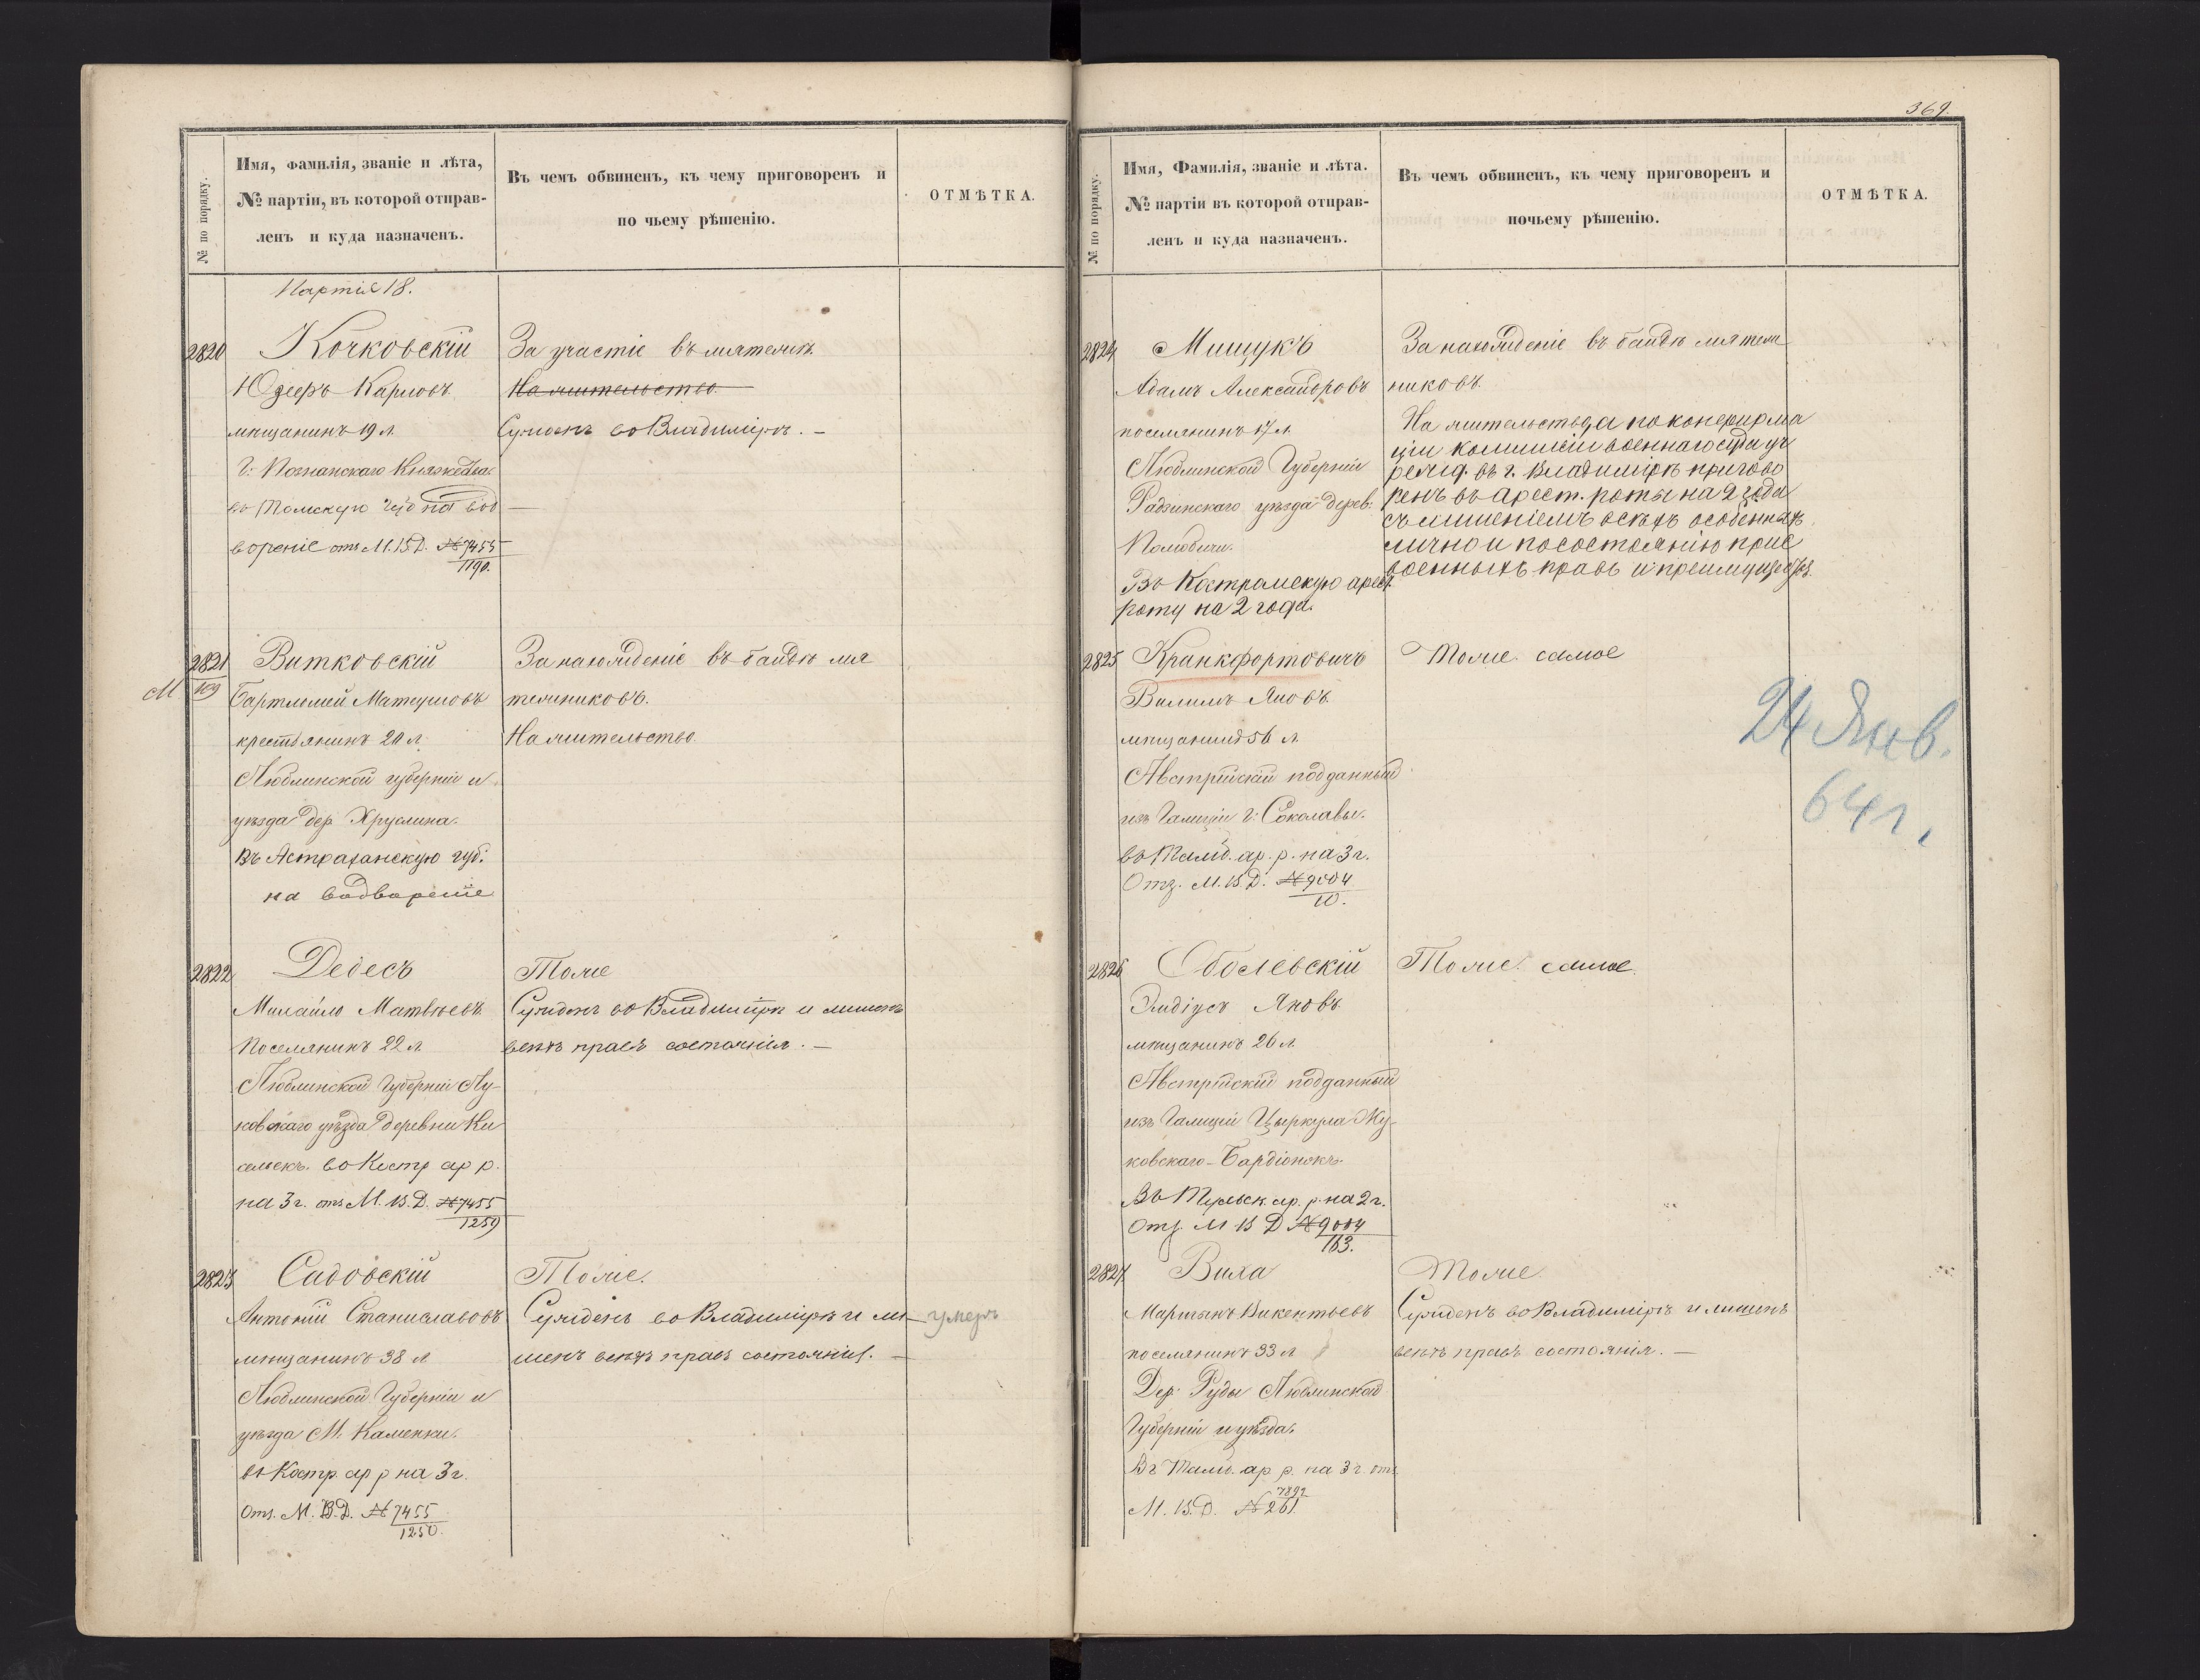 № по порядку.
Имя, фамилія, званіе и лѣта,
№ партіи, въ которой отправ-
ленъ и куда назначенъ.
Въ чемъ обвиненъ, къ чему приговоренъ и
по чьему рѣшенію.
ОТМѢТКА.
Партія 18.
2820
Кочковскій
Юзефъ Карловъ
мѣщанинъ 19 л.
г. Познанскаго Княжества
въ Томскую губ на вод
вореніе отз М.В.Д. № 7455
1190.
За участіе въ мятежѣ.
На жительство.
Сужденъ во Владимірѣ. —
2821
109
М
Витковскій
Бартломей Матеушовъ
крестьянинъ 20 л.
Люблинской губерніи и
уѣзда дер. Хруслина.
Въ Астраханскую губ:
на водвореніе
За нахожденіе въ бандѣ мя
тежниковъ.
На жительство
2822
Дедесъ
Михайло Матвѣевъ
Поселянинъ 22 л.
Люблинской Губерніи Лу-
ковскаго уѣзда деревни Ки
сельскъ. во Костр ар р.
на 3 г. отз М.В.Д. № 7455
1259
Тоже
Сужденъ во Владимірѣ и лишенъ
всѣхъ правъ состоянія. —
2823
Садовскій
Антоній Станиславовъ
мѣщанинъ 38 л
Люблинской Губерніи и
уѣзда М. Каменки.
въ Костр. ар р на 3 г.
Отз. М.В.Д. № 7455
1250.
Тоже.
Сужденъ во Владимірѣ и ли-
шенъ всѣхъ правъ состоянія. —
умеръ
369.
№ по порядку.
Имя, Фамилія, званіе и лѣта.
№ партіи въ которой отправ-
ленъ и куда назначенъ.
Въ чемъ обвиненъ, къ чему приговоренъ и
почьему рѣшенію.
ОТМѢТКА.
2824
Мищукъ
Адамъ Александровъ
поселянинъ 17 л.
Люблинской Губерніи
Радзинскаго уѣзда дерев:
Въ Костромскую арест.
роту на 2 года.
За нахожденіе въ бандѣ мятеж
никовъ.
На жительство, а по конфирма
ціи коммисіи военнаго суда уч
режд. въ г. Владимірѣ пригово
ренъ въ арест. роты на 2 года
съ лишеніемъ всѣхъ особенныхъ
лично и по состоянію прис
военныхъ правъ и преимуществъ.
2825
Кранкфортовичъ
Вильмъ Яновъ.
мѣщанинъ 56 л.
Австрійскій подданный
изъ Галиціи г: Соколавы.
въ Тамб. ар. р. на 3 г.
Отз. М.В.Д. № 9004
10.
Тоже самое
24 Янв.
64 г.
2826
Оболевскій
Эмидіусъ Яновъ
мѣщанинъ 26 л.
Австрійскій подданный
изъ Галиціи Цыркула Жу-
ковскаго-Бардіонокъ.
Въ Тульск. ар. р. на 2 г.
Отз. М В Д № 9004
163.
Тоже самое.
2827
Виха
Мартынъ Викентьевъ
поселянинъ 33 л
Дер. Руды Люблинской
Губерніи и уѣзда.
Въ Тамб. ар. р. на 3 г. отз
7892
М.В.Д. № 261.
Тоже
Сужденъ во Владимірѣ и лишенъ
всѣхъ правъ состоянія. —